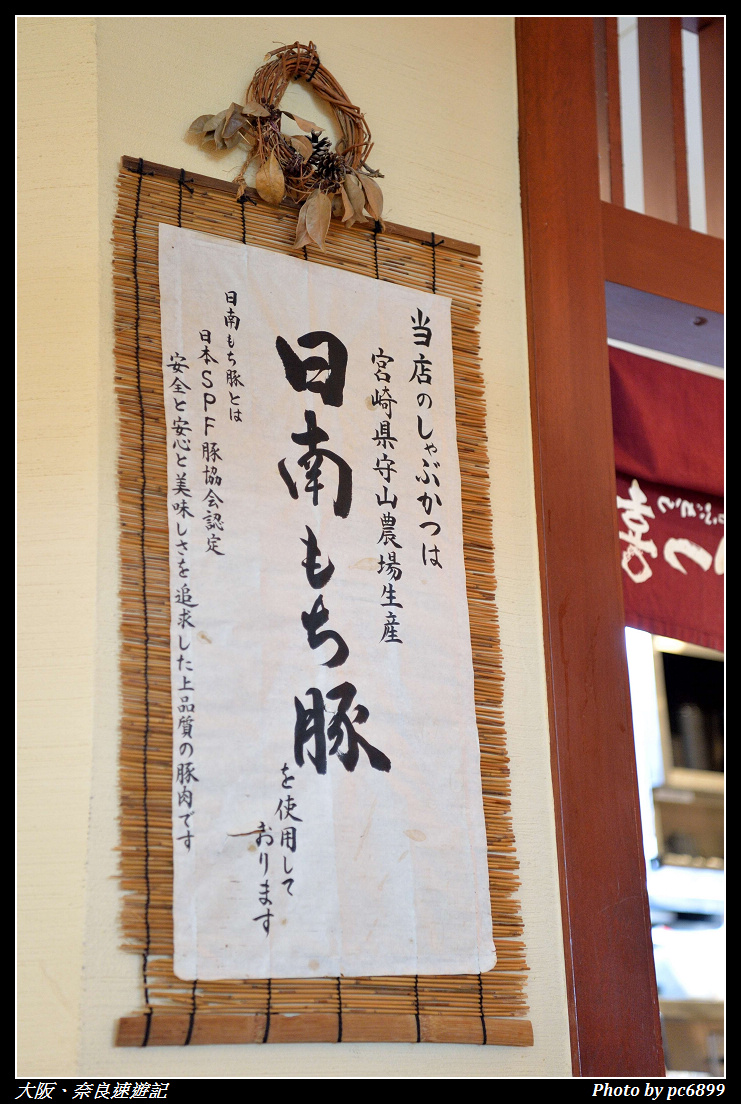 当店のしゃぶかつは
宮崎県守山農場生産
日南もち豚
を使用して
おります
日南もち豚とは
日本SPF豚協会認定
安全と安心と美味しさを追求した上品質の豚肉です
喜
大阪、奈良速遊記
Photo by pc6899